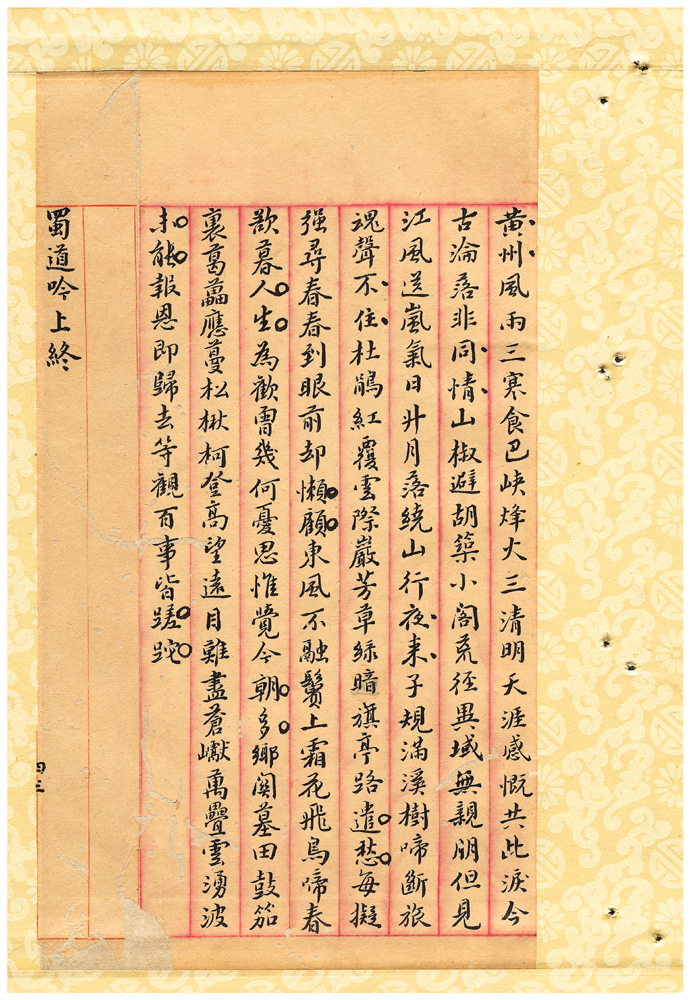 黃州風雨三寒食巴峽烽火三清明天涯感慨共此淚今
古淪落非同情山椒避胡築小閣荒徑異域無親朋但見
江風送嵐氣日升月落繞山行夜來子規滿溪樹啼斷旅
魂聲不住杜鵑紅覆雲際巖芳草綠暗旗亭路遣愁每擬
強尋春春到眼前却懶顧東風不融鬢上霜花飛鳥啼春
欲暮人生為歡曾幾何憂思惟覺今朝多鄉関墓田鼓笳
裏葛藟應蔓松楸柯登高望遠目難盡蒼巘萬疊雲湧波
未能報恩即歸去等觀百事皆蹉跎
蜀道吟上終
四三